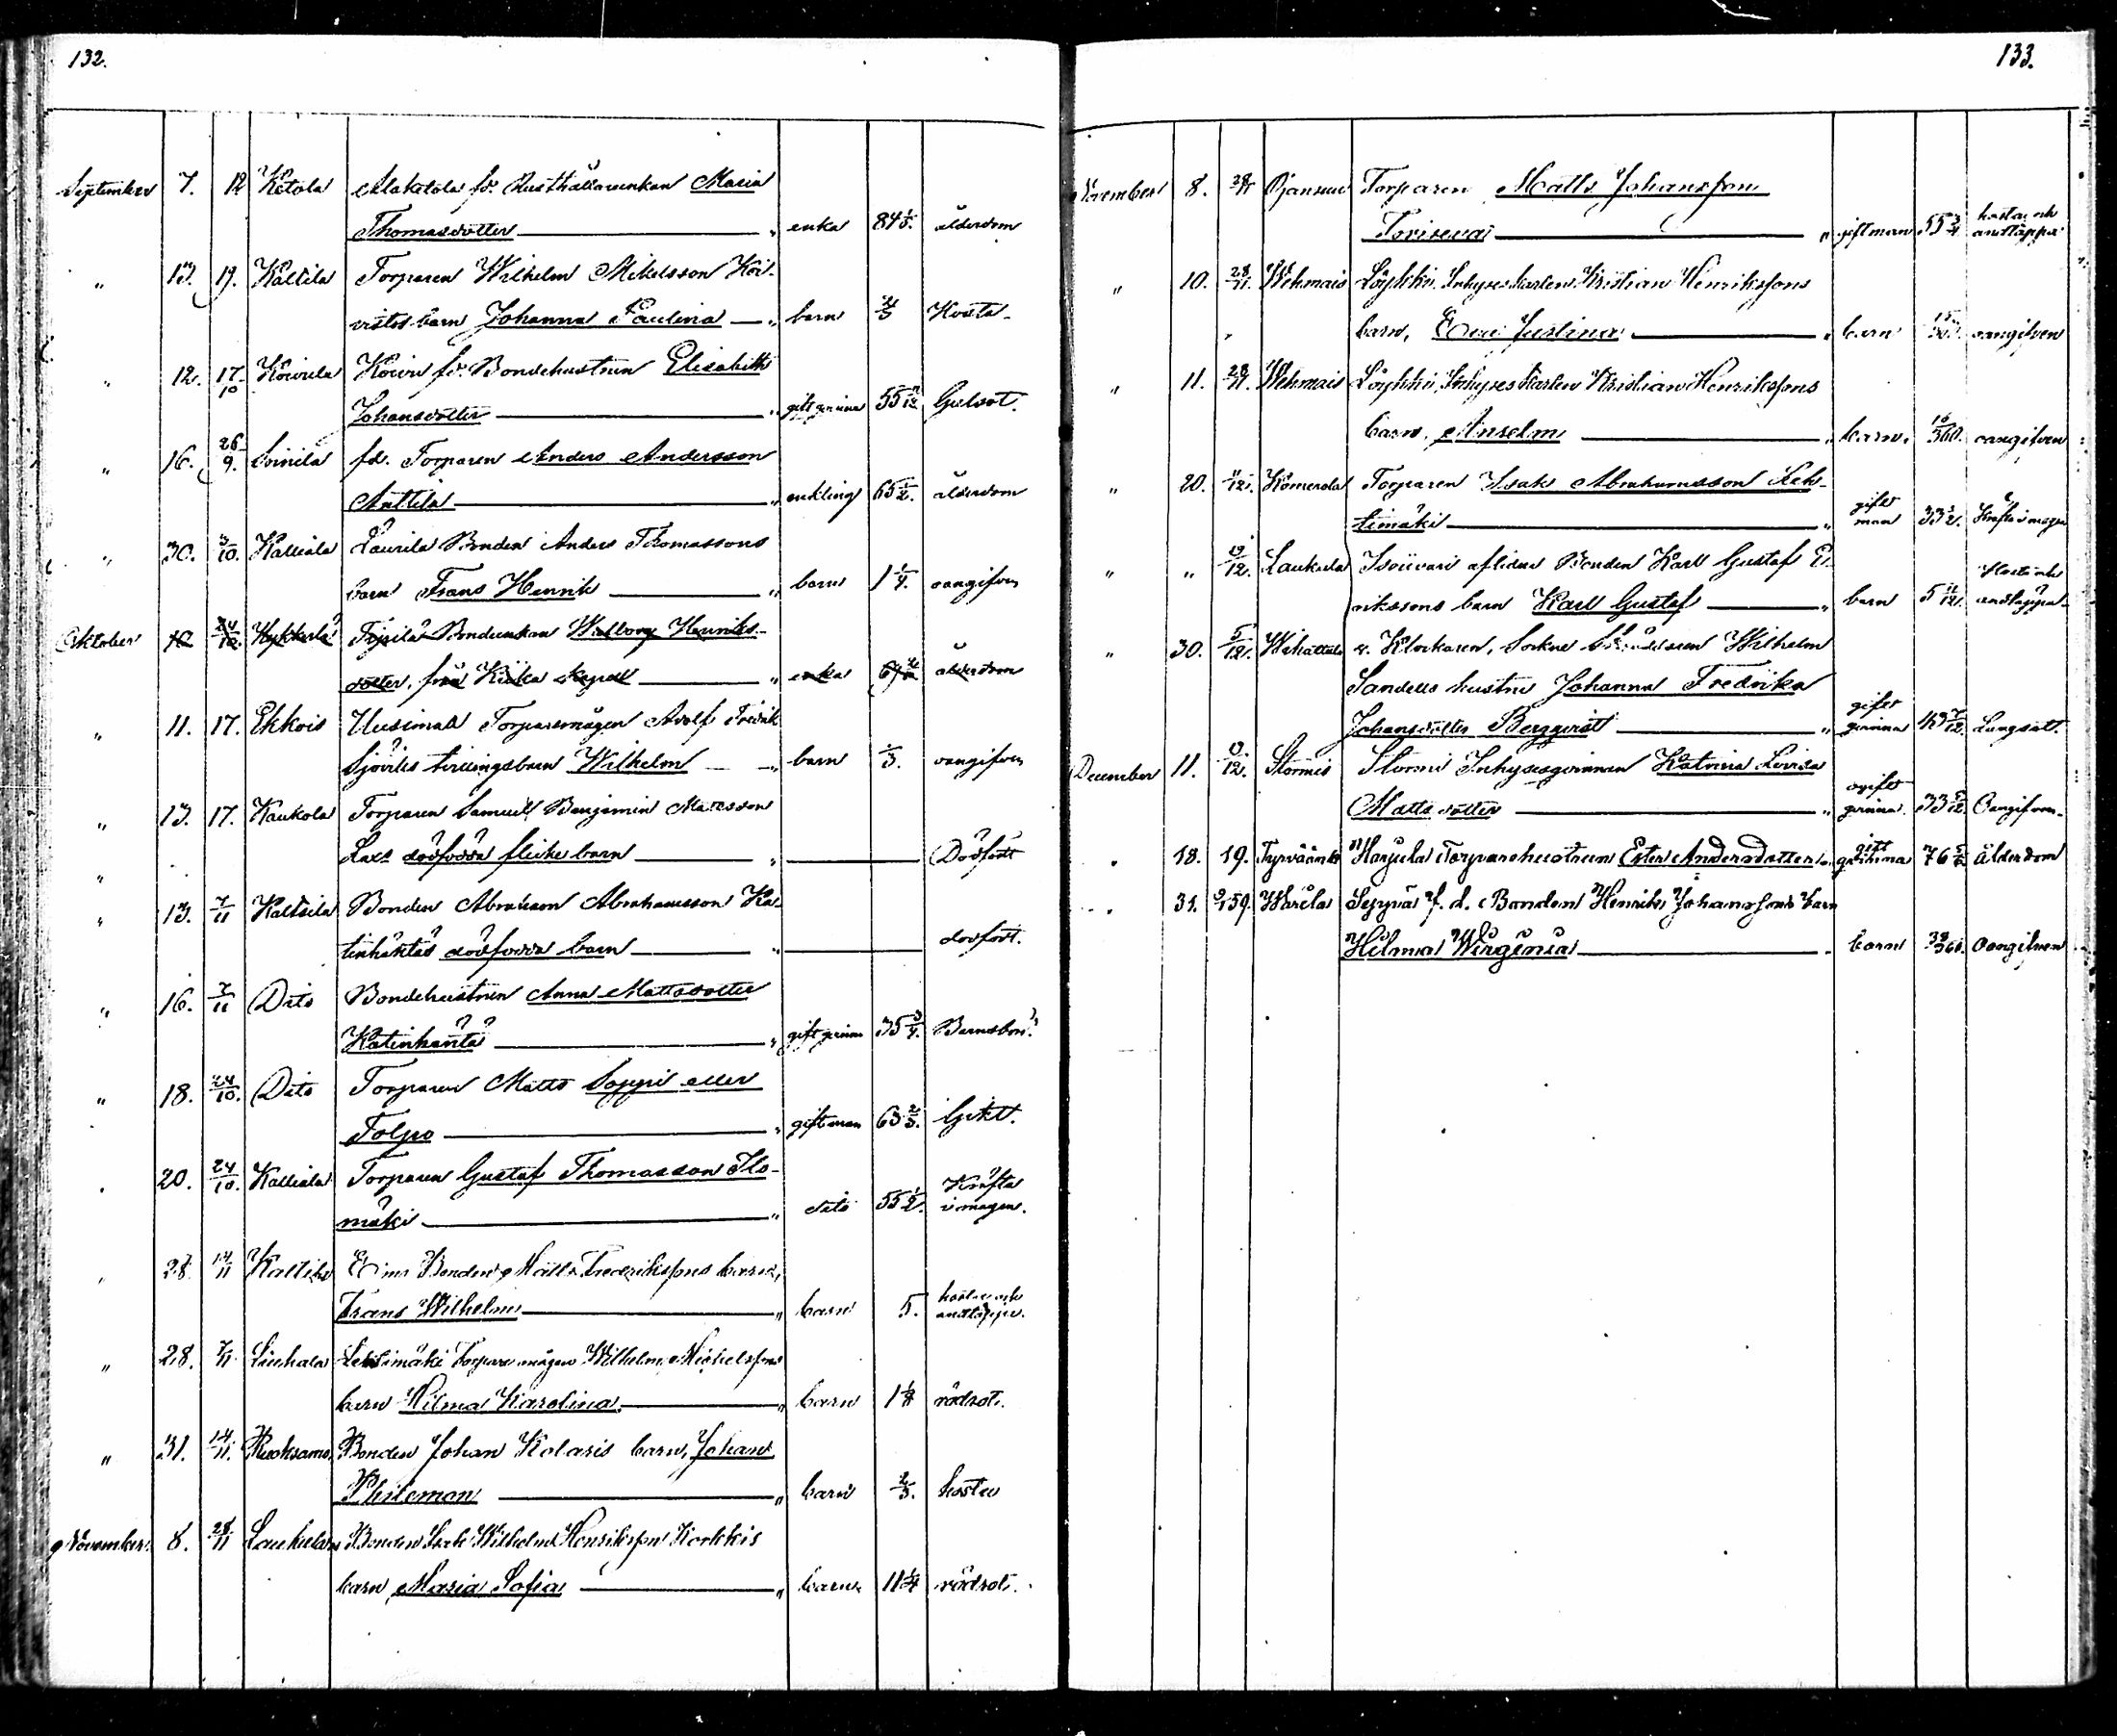 132.
September 7. 12 Ketola Alaketola fd. Rusthållareenkan Maria
Thomasdotter " enka 84 1/5. ålderdom
" 13. 19. Kaltila Torparen Wilhelm Mikelsson Koi-
vistos barn Johanna Paulina " barn Hosta
" 12. 17/10 Koivula Koivu fd. Bondehustrun Elisabeth
Johansdotter " gift qvinna 55 Gulsot.
" 16. 26/9. Soinila fd. Torparen Anders Andersson
Anttila " enkling 65 1/2. ålderdom
" 30. 3/10. Kalliala Laurila Bonden Anders Thomassons
barn Frans Henrik " barn 1 1/4. oangifven
Oktober 10 24/10. Kykkerlä Bondeenkan Walborg Henriks-
dotter, från Kiika Kapell " enka ålderdom
" 11. 17. Ekkois Uusimaa Torparemågen Adolf Fredrik
Sjövits tvillingsbarn Wilhelm " barn 1/3. oangifven
" 13. 17. Kaukola Torparen Samuel Benjamin Mattsson
dödfödda flicke barn " Dödfödt
" 13. 7/11 Kaltsila Bonden Abraham Abrahamsson Ka-
tinhäntäs dödfödda barn " dödfödt.
" 16. 7/11 Dito Bondehustrun Anna Mattsdotter
Katinhäntä " gift qvinna 35 3/4. Barnsbörd
" 18. 24/10. Dito Torparen Matts Soppi eller
Tolpo " gift man 63 2/3. Gikt.
" 20. 24/10. Kalliala Torparen Gustaf Thomasson Ilo-
mäki " dito 55 1/2. Kräfta
i magen.
" 28. 14/11 Kaltila Bonden Matts Fredrikssons barn,
Frans Wilhelm " barn 5. hosta och
andtäppa.
" 28. 7/11 Liuhala Lehtimäki Torpare mågen Wilhelm Michelssons
barn Hilma Karolina " barn 1 1/8 rödsot.
" 31. 14/11. Ruoksamo, Bonden Johan Kolaris barn, Johan
Phileman " barn 2/3. hosta
November. 8. 28/11 Laukula Bonden Isak Wilhelm Henriksson Korkkis
barn, Maria Sofia " barn 11 1/4 rödsot.
133.
November 8. 28/11 Ojansuu Torparen Matts Johansson
Toriseva " gift man 55 3/4 hosta och
andtäppa
" 10. 28/11. Wehmais Löykki, Inhyses karlen Kristian Henrikssons
barn, Eva Justina " barn oangifven
" 11. 28/11. Wehmais Löykki, Inhyses karlen Kristian Henrikssons
barn, Anselm " barn. 16/360. oangifven
" 20. 11/12. Komerola Torparen Isak Abrahamsson Leh-
timäki " gift
man 33 1/2. Kräfta i magen
" " 19/12. Laukula Isoüvari aflidne Bonden Karl Gustaf E-
rikssons barn Karl Gustaf " barn 5 11/12. Hosta och
andtäppa
" 30. 5/12. v. Klockaren, Sockne Wilhelm
Sandells hustru Johanna Fredrika
Johansdotter Bergqvist " gift
qvinna Lungsot.
December 11. /12. Stormis Stormi Inhysesqvinnan Katrina Lovisa
Matts dotter " ogift
qvinna 33 Oangifven.
" 18. 19. Tyrväänk. Harjula Torparehustrun Ester Andersdotter " gift
qvinna 76 Ålderdom
" 31. Warila Seppä f. d. Bonden Henrik Johanssons barn
Hilma Wirginia " barn oangifven